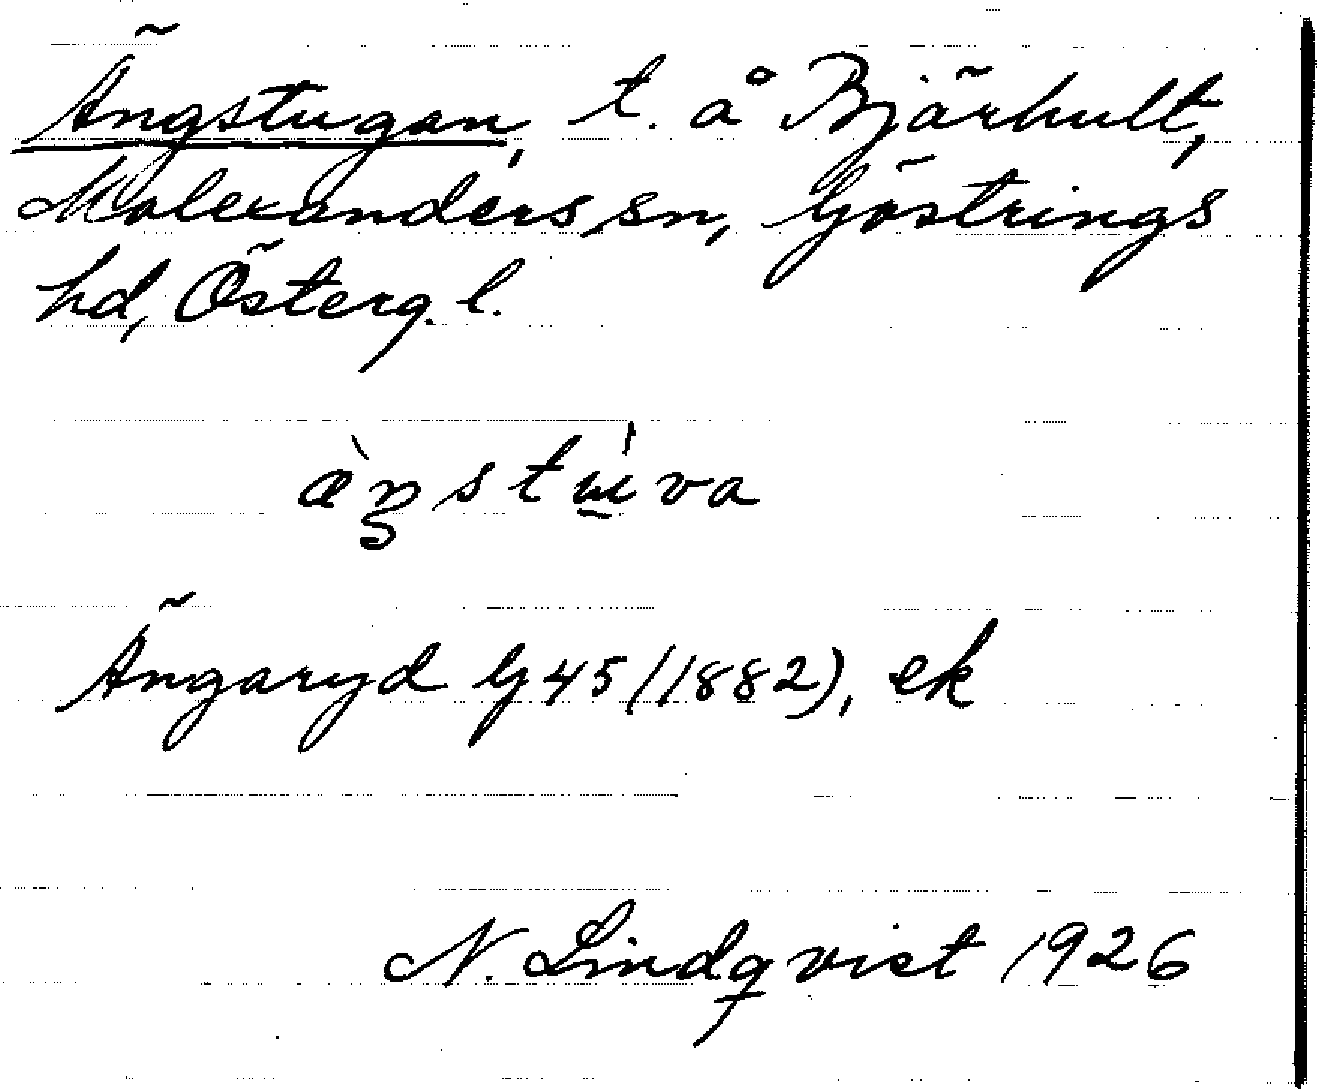 Ängstugan, t. å Bjärhult,
Malexanders sn, Göstrings
hd, Österg. l.
æ̀ŋstú̲va
Ängaryd G 45 (1882), ek
N. Lindqvist 1926